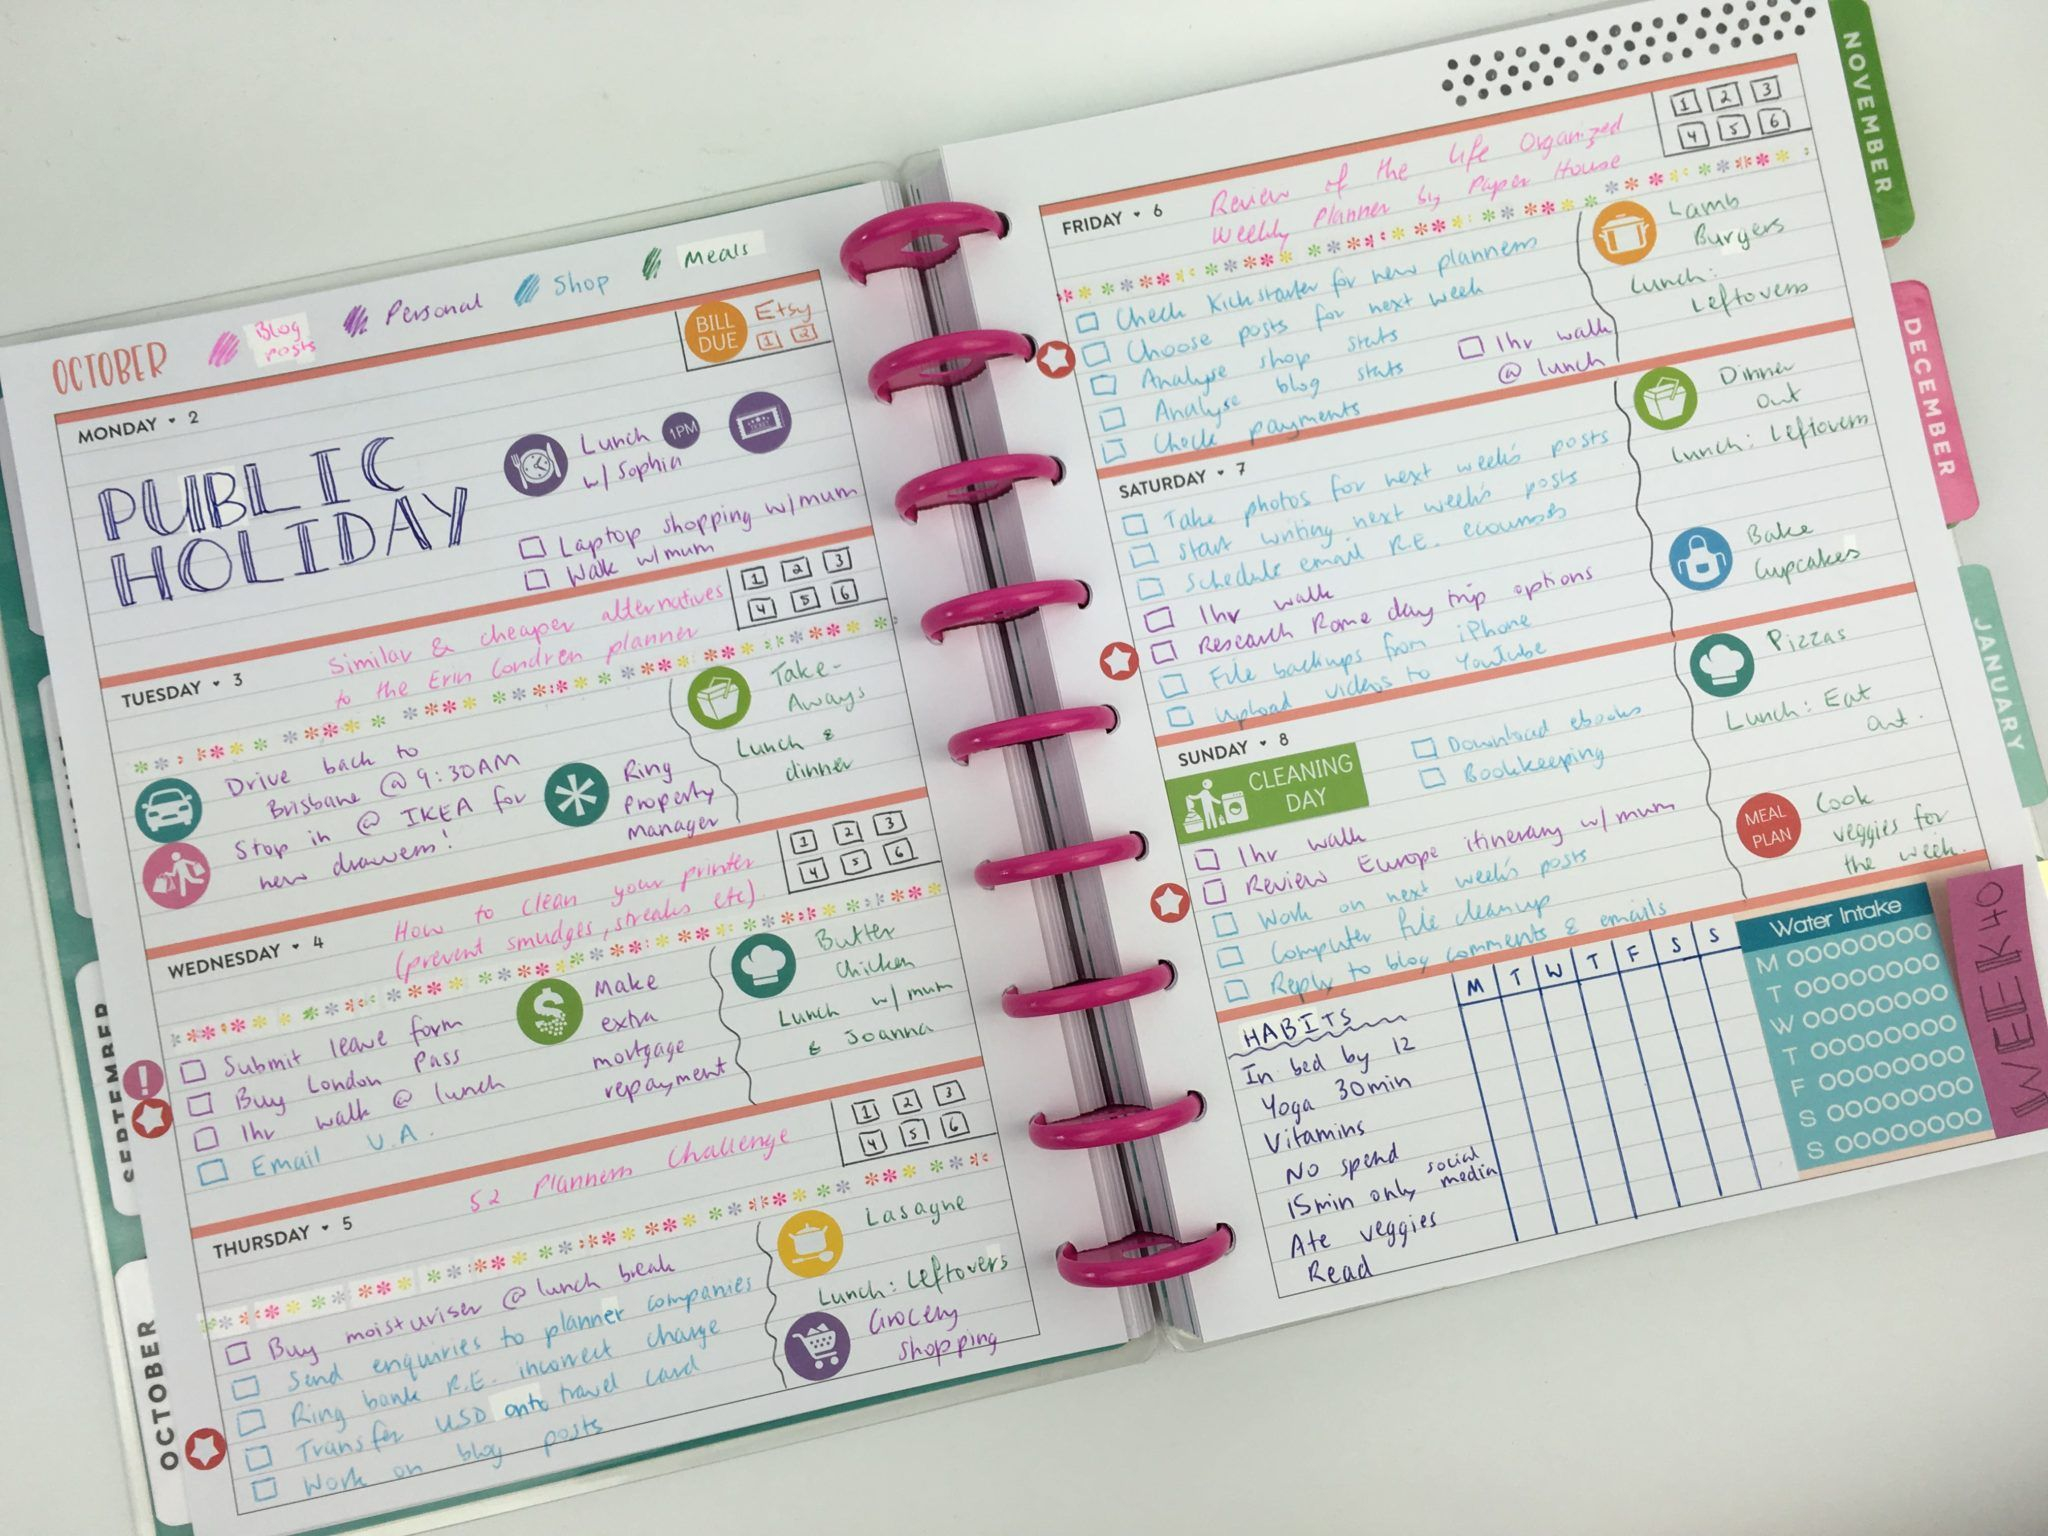 OCTOBER
Blog posts
Personal
Shop
Meals
MONDAY • 2
BILL DUE
Etsy
1 2
PUBLIC
HOLIDAY
Lunch 1PM
w/ Sophia
TICKET
Laptop shopping w/mum
Walk w/mum
TUESDAY • 3
Similar & cheaper alternatives
to the Erin Condren planner
1 2 3
4 5 6
Drive back to
Brisbane @ 9:30AM
Stop in @ IKEA for
new drawers!
Ring
property
manager
Take-
Aways
Lunch &
dinner
WEDNESDAY • 4
How to clean your printer
(prevent smudges, streaks etc)
1 2 3
4 5 6
Submit leave form
Buy London Pass
1hr walk @ lunch
Email V.A.
$
Make
extra
mortgage
repayment
Butter
Chicken
Lunch w/ mum
& Joanna
!
THURSDAY • 5
52 Planners Challenge
1 2 3
4 5 6
Buy moisturiser @ lunch break
Send enquiries to planner companies
Ring bank R.E. incorrect charge
Transfer USD onto travel card
Work on blog posts
Lasagne
Lunch: Leftovers
Grocery
shopping
SEPTEMBER
OCTOBER
FRIDAY • 6
Review of the Life Organized
Weekly Planner by Paper House
1 2 3
4 5 6
Check Kickstarter for new planners
Choose posts for next week
Analyse shop stats
Analyse blog stats
Check payments
1hr walk
@ lunch
Lamb
Burgers
Lunch:
Leftovers
SATURDAY • 7
Take photos for next week's posts
Start writing next week's posts
Schedule email R.E. ecourses
1hr walk
Research Rome day trip options
File backups from iPhone
Upload videos to YouTube
Dinner
out
Lunch: Leftovers
Bake
Cupcakes
SUNDAY • 8
CLEANING
DAY
Download ebooks
Bookkeeping
1hr walk
Review Europe itinerary w/ mum
Work on next week's posts
Computer file cleanup
Reply to blog comments & emails
Pizzas
Lunch: Eat
out.
MEAL
PLAN
Cook
veggies for
the week.
HABITS
M T W T F S S
In bed by 12
Yoga 30min
Vitamins
No spend
15min only social media
Ate veggies
Read
Water Intake
M
T
W
T
F
S
S
WEEK 40
NOVEMBER
DECEMBER
JANUARY